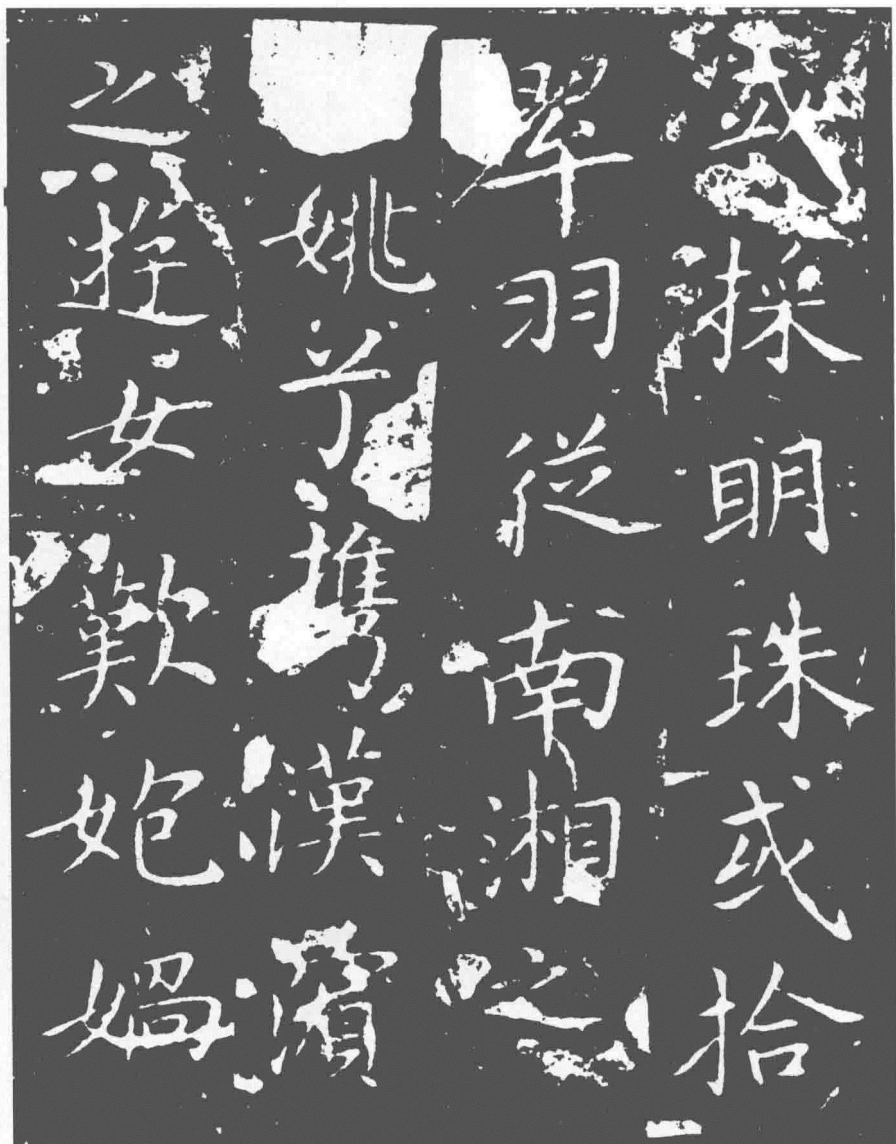 或採明珠或拾
翠羽從南湘之
姚兮携漢濱
之遊女歎㚿媧